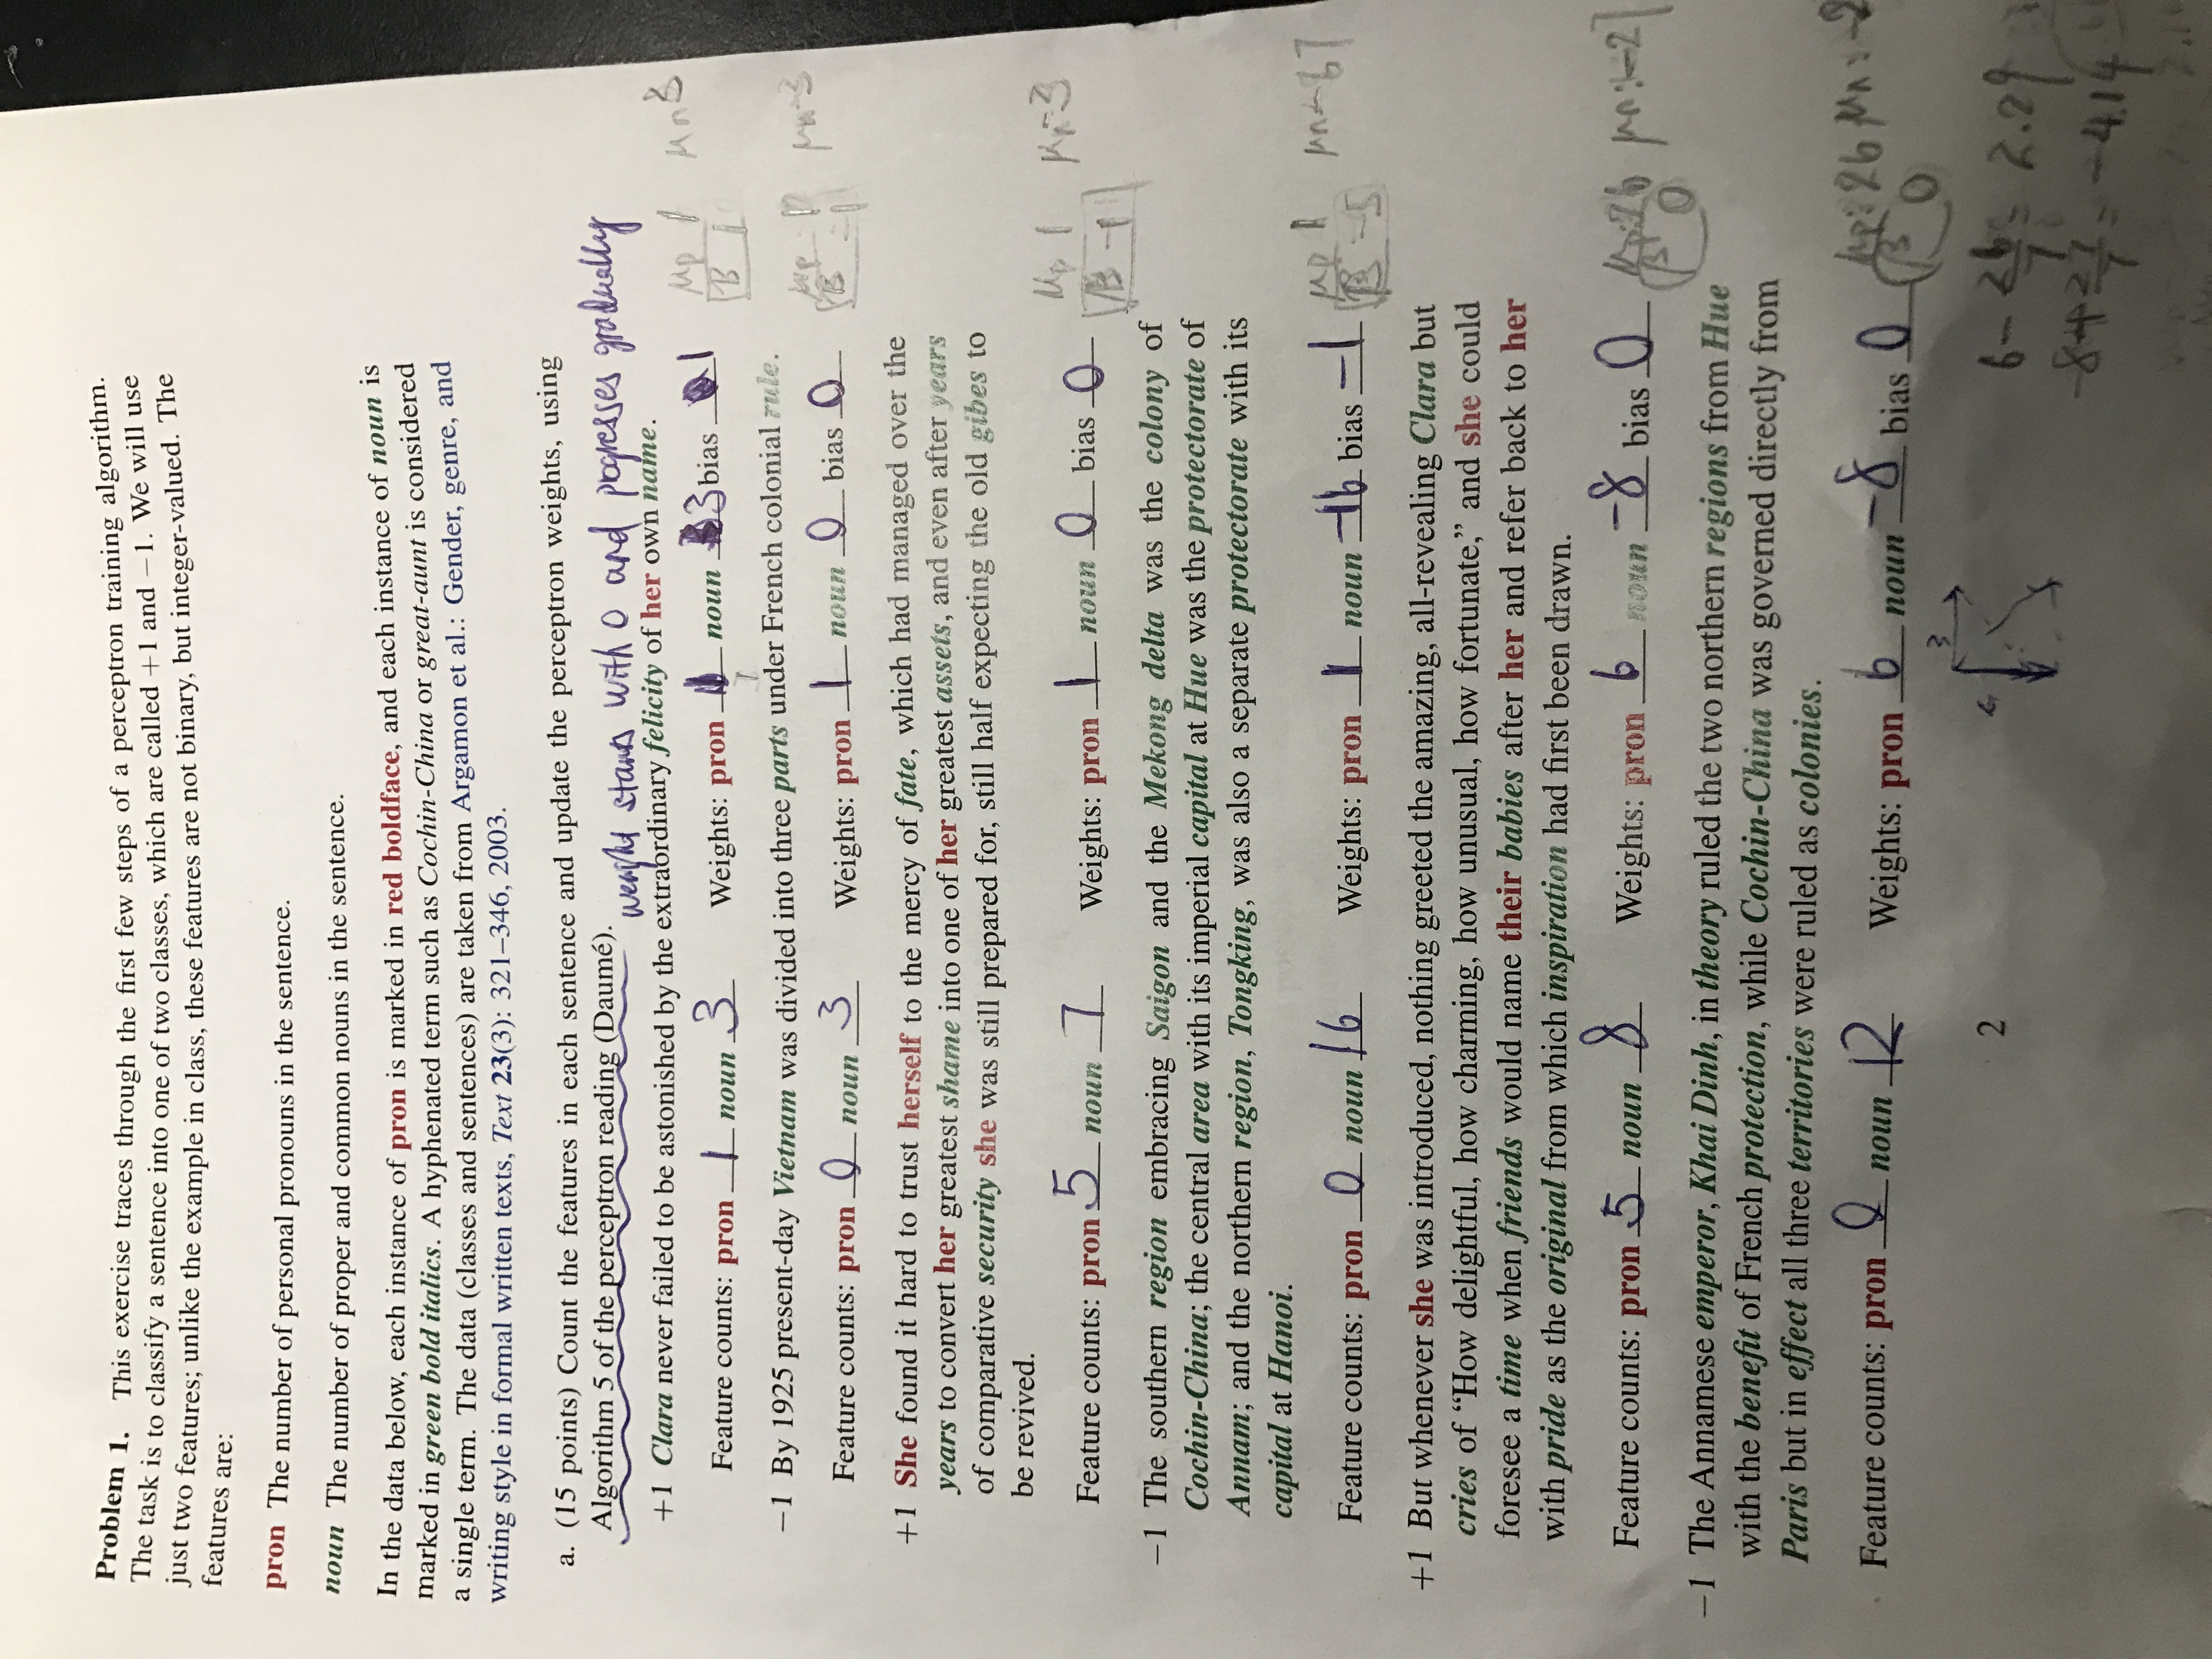 Problem 1. This exercise traces through the first few steps of a perceptron training algorithm.
The task is to classify a sentence into one of two classes, which are called +1 and −1. We will use
just two features; unlike the example in class, these features are not binary, but integer-valued. The
features are:
pron The number of personal pronouns in the sentence.
noun The number of proper and common nouns in the sentence.
In the data below, each instance of pron is marked in red boldface, and each instance of noun is
marked in green bold italics. A hyphenated term such as Cochin-China or great-aunt is considered
a single term. The data (classes and sentences) are taken from Argamon et al.: Gender, genre, and
writing style in formal written texts, Text 23(3): 321–346, 2003.
a. (15 points) Count the features in each sentence and update the perceptron weights, using
Algorithm 5 of the perceptron reading (Daumé).
weight starts with 0 and progresses gradually
+1 Clara never failed to be astonished by the extraordinary felicity of her own name.
μp 1 μn 3
Feature counts: pron 1 noun 3 Weights: pron 1 noun 3 bias 1
B 1
−1 By 1925 present-day Vietnam was divided into three parts under French colonial rule.
Feature counts: pron 0 noun 3 Weights: pron 1 noun 0 bias 0
B −1
+1 She found it hard to trust herself to the mercy of fate, which had managed over the
years to convert her greatest shame into one of her greatest assets, and even after years
of comparative security she was still prepared for, still half expecting the old gibes to
be revived.
μp 1 μn −3
Feature counts: pron 5 noun 7 Weights: pron 1 noun 0 bias 0
B −1
−1 The southern region embracing Saigon and the Mekong delta was the colony of
Cochin-China; the central area with its imperial capital at Hue was the protectorate of
Annam; and the northern region, Tongking, was also a separate protectorate with its
capital at Hanoi.
Feature counts: pron 0 noun 16 Weights: pron 1 noun −16 bias −1
B −5
+1 But whenever she was introduced, nothing greeted the amazing, all-revealing Clara but
cries of “How delightful, how charming, how unusual, how fortunate,” and she could
foresee a time when friends would name their babies after her and refer back to her
with pride as the original from which inspiration had first been drawn.
Feature counts: pron 5 noun 8 Weights: pron 6 noun −8 bias 0
μp:26 μn:−27
B 0
−1 The Annamese emperor, Khai Dinh, in theory ruled the two northern regions from Hue
with the benefit of French protection, while Cochin-China was governed directly from
Paris but in effect all three territories were ruled as colonies.
μp:26 μn:−2
Feature counts: pron 0 noun 12 Weights: pron 6 noun −8 bias 0
B 0
3
2
6 − 26/7 = 2.29
−8 + 27/7 = −4.14